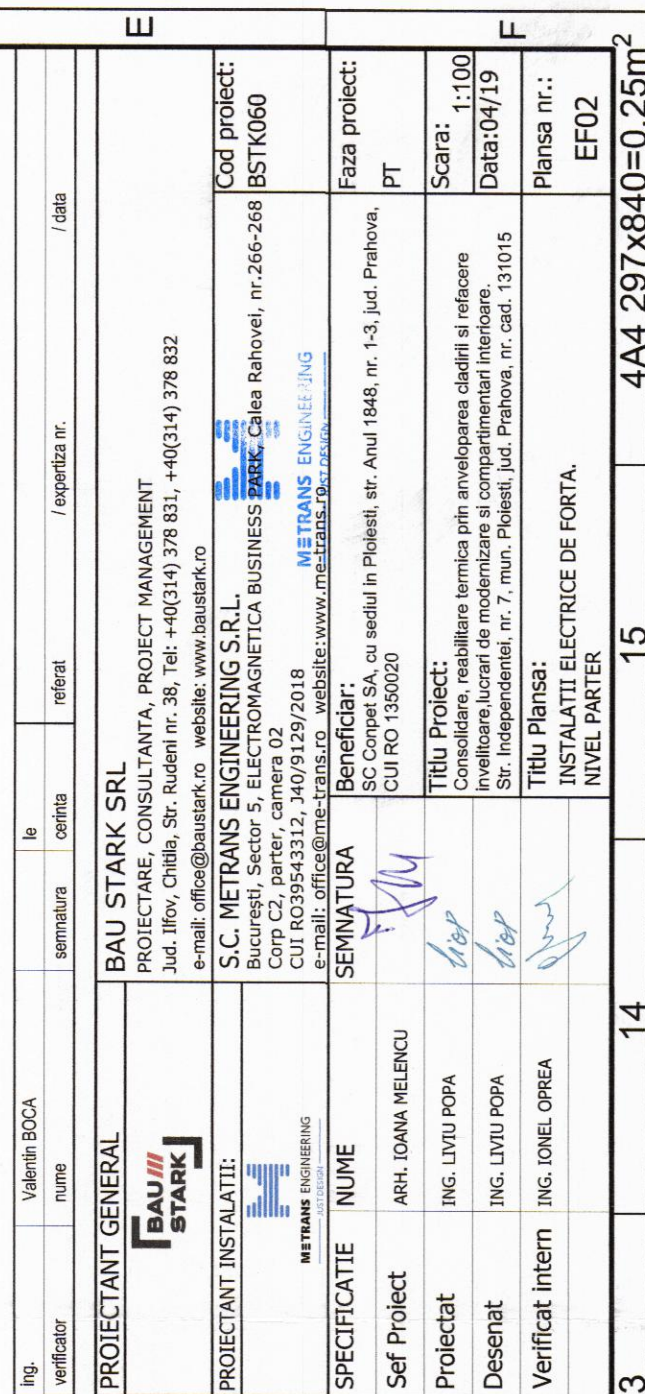 ing. Valentin BOCA Ie
verificator nume semnatura cerinta referat / expertiza nr. / data
PROIECTANT GENERAL
BAU STARK
BAU STARK SRL
PROIECTARE, CONSULTANTA, PROJECT MANAGEMENT
Jud. Ilfov, Chitila, Str. Rudeni nr. 38, Tel: +40(314) 378 831, +40(314) 378 832
e-mail: office@baustark.ro website: www.baustark.ro
PROIECTANT INSTALATII:
METRANS ENGINEERING
JUST DESIGN
S.C. METRANS ENGINEERING S.R.L.
București, Sector 5, ELECTROMAGNETICA BUSINESS PARK, Calea Rahovei, nr.266-268
Corp C2, parter, camera 02
CUI RO39543312, J40/9129/2018
e-mail: office@me-trans.ro website:www.me-trans.ro
METRANS ENGINEERING
JUST DESIGN
Cod proiect:
BSTK060
SPECIFICATIE NUME SEMNATURA
Sef Proiect ARH. IOANA MELENCU
Proiectat ING. LIVIU POPA
Desenat ING. LIVIU POPA
Verificat intern ING. IONEL OPREA
Beneficiar:
SC Conpet SA, cu sediul in Ploiesti, str. Anul 1848, nr. 1-3, jud. Prahova,
CUI RO 1350020
Faza proiect:
PT
Titlu Proiect:
Consolidare, reabilitare termica prin anveloparea cladirii si refacere
invelitoare,lucrari de modernizare si compartimentari interioare.
Str. Independentei, nr. 7, mun. Ploiesti, jud. Prahova, nr. cad. 131015
Scara: 1:100
Data:04/19
Titlu Plansa:
INSTALATII ELECTRICE DE FORTA.
NIVEL PARTER
Plansa nr.:
EF02
3 14 15 4A4 297x840=0.25m²
E
F